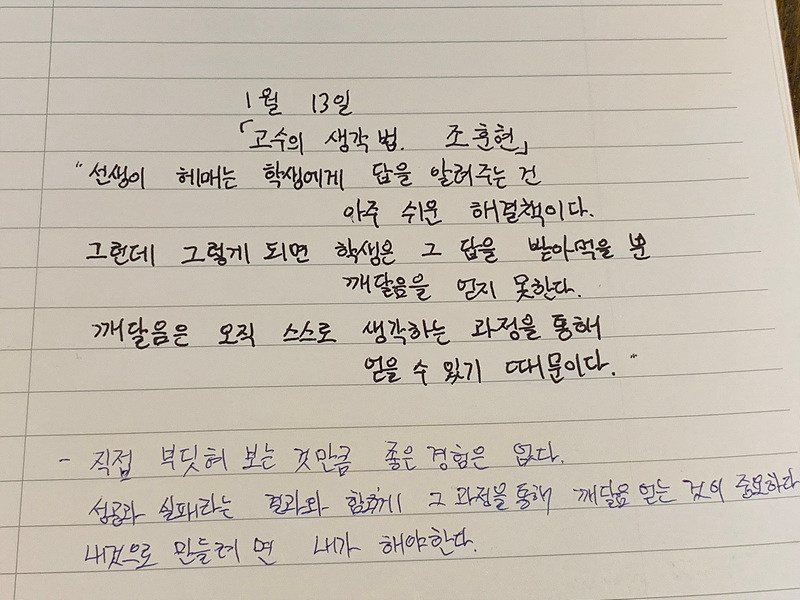 1월 13일
「고수의 생각법. 조훈현」
"선생이 헤매는 학생에게 답을 알려주는 건
아주 쉬운 해결책이다.
그런데 그렇게 되면 학생은 그 답을 받아먹을 뿐
깨달음을 얻지 못한다.
깨달음은 오직 스스로 생각하는 과정을 통해
얻을 수 있기 때문이다."
- 직접 부딪혀 보는 것만큼 좋은 경험은 없다.
성공과 실패라는 결과와 함께 그 과정을 통해 깨달음 얻는 것이 중요하다
내것으로 만들려면 내가 해야한다.